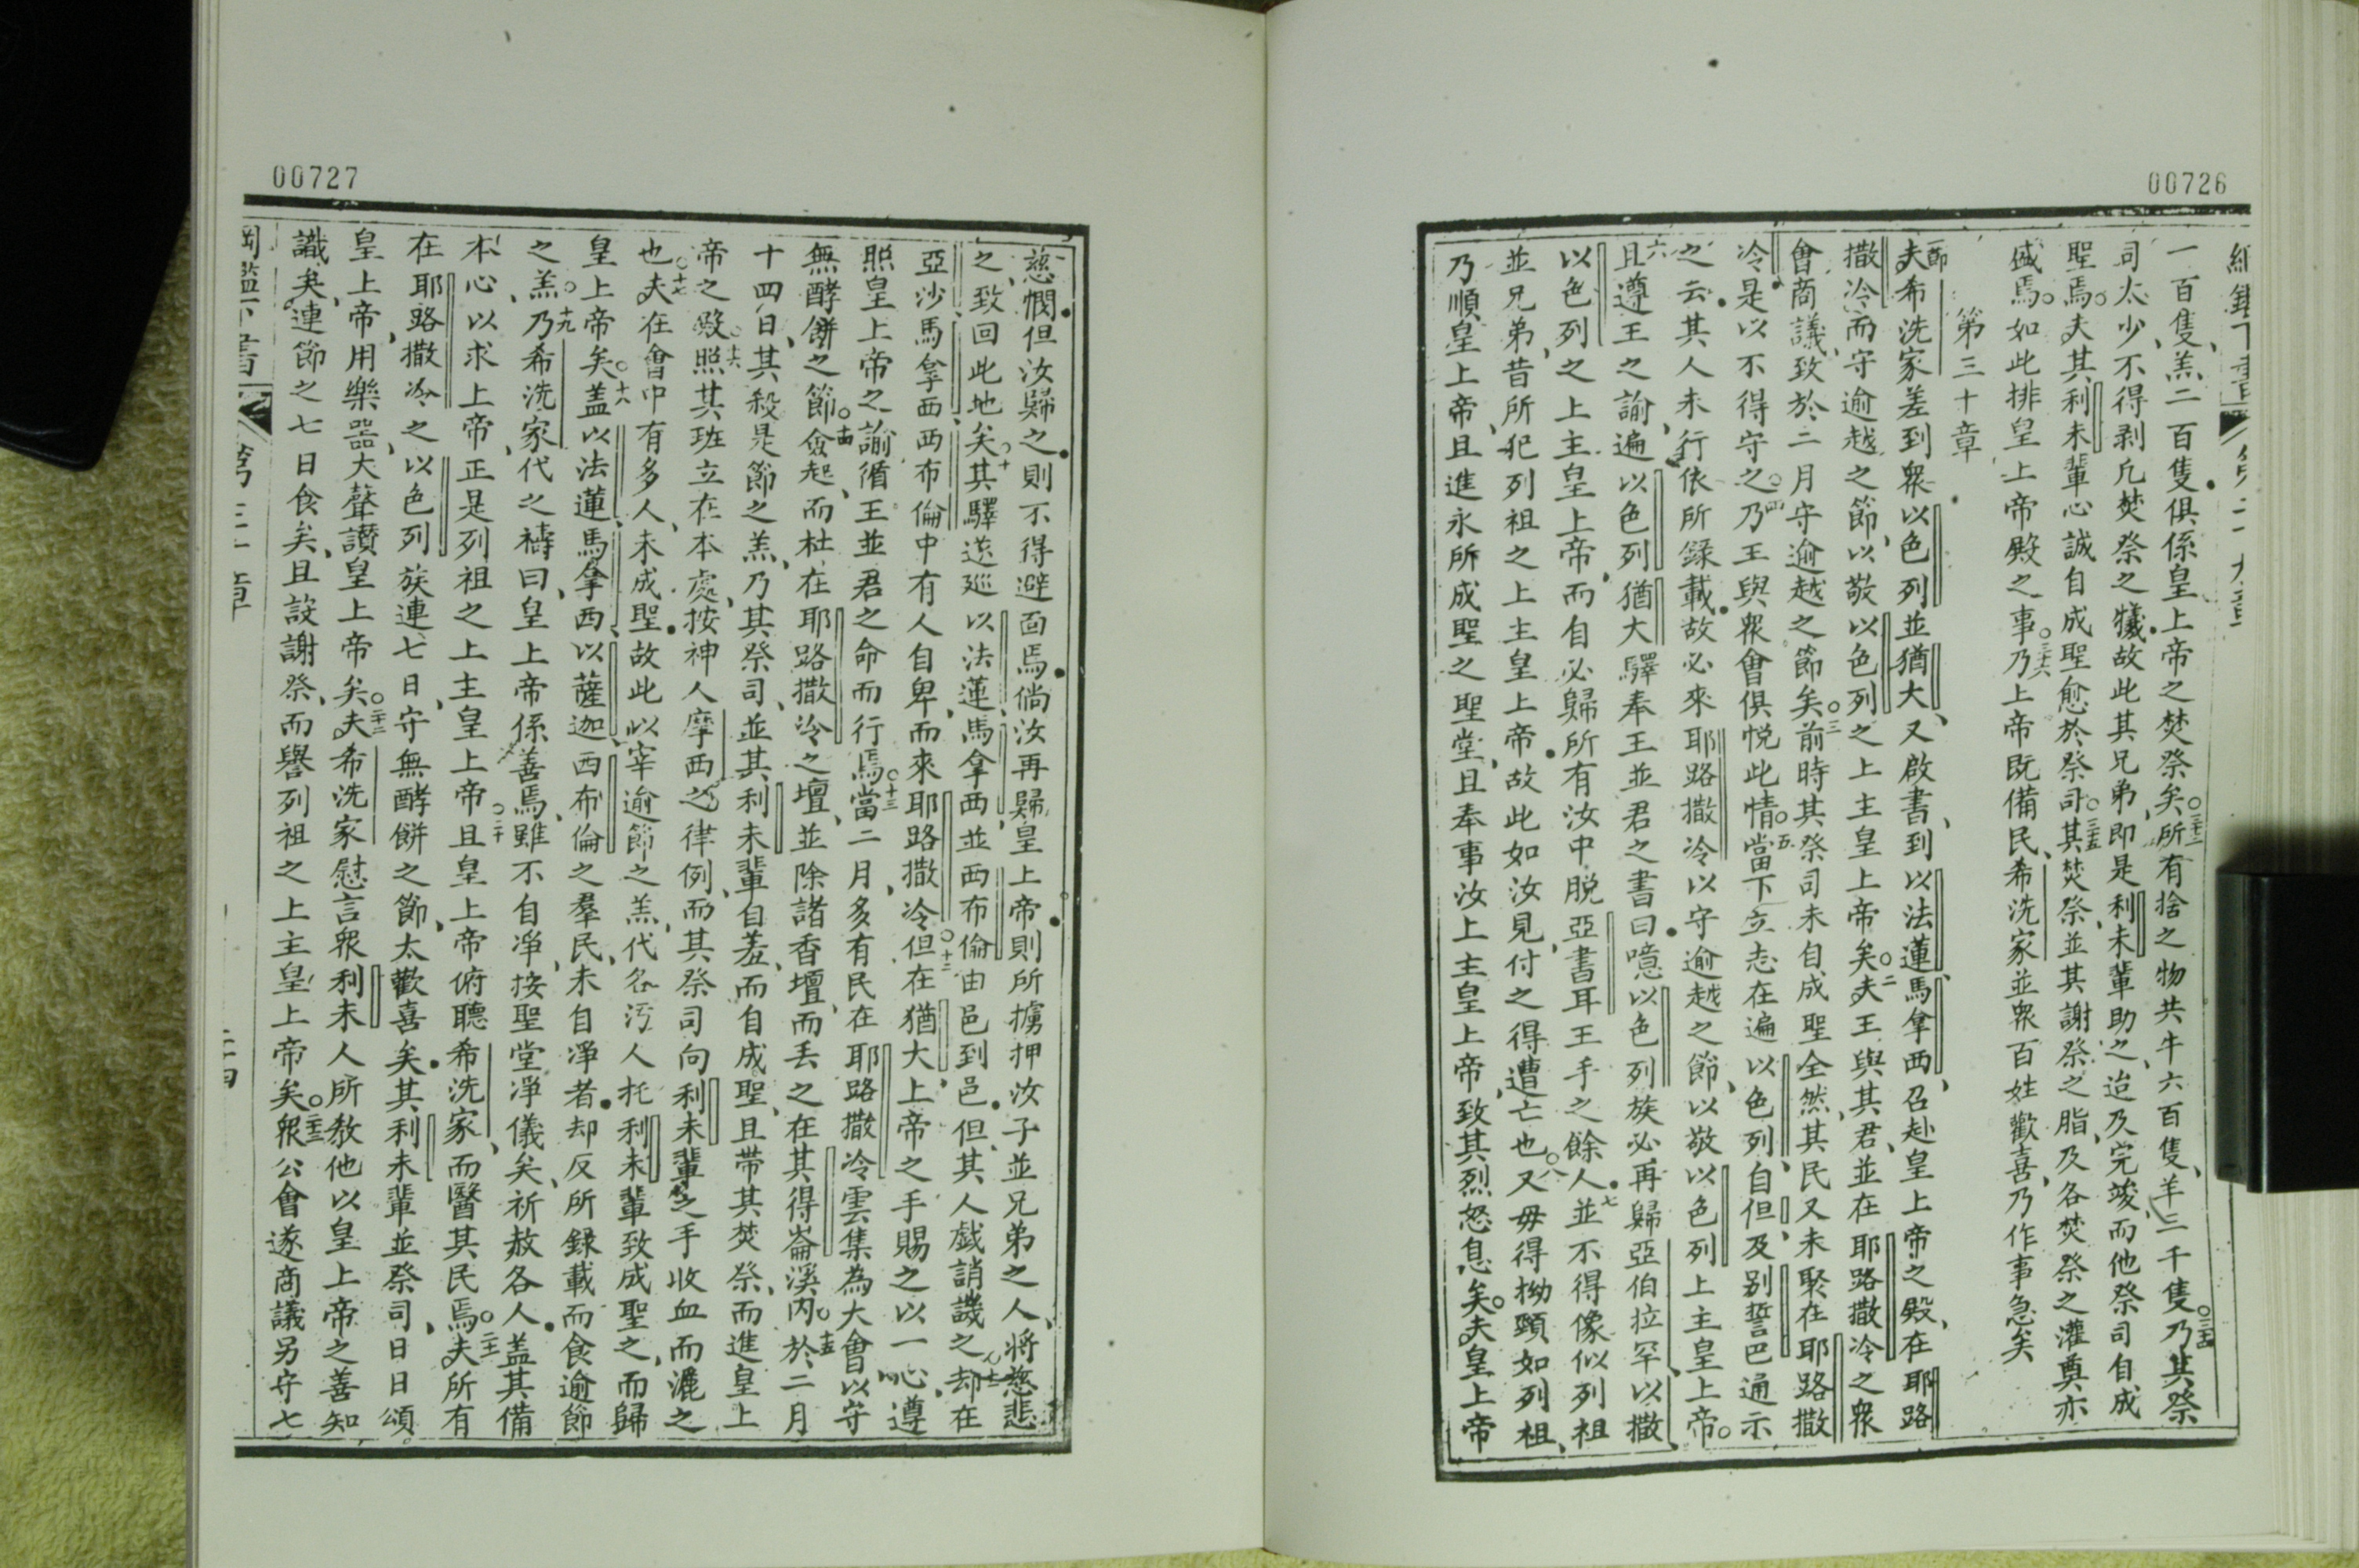 00726
一百隻、羔二百隻俱係皇上帝之焚祭矣。三十三所有捨之物共牛六百隻、羊三千隻。三十四乃其祭
司太少、不得剥凡焚祭之犧故此其兄弟即是利未輩助之、迨及完竣、而他祭司自成
聖焉。夫其利未輩心誠自成聖愈於祭司。三十五其焚祭、並其謝祭之脂、及各焚祭之灌奠亦
盛焉。如此排皇上帝殿之事。三十六乃上帝既備民、希洗家並衆百姓歡喜、乃作事急矣
第三十章
一節夫希洗家差到衆以色列並猶大、又啟書到以法蓮、馬拿西、召赴皇上帝之殿、在耶路
撒冷而守逾越之節、以敬以色列之上主皇上帝矣。二夫王與其君、並在耶路撒冷之衆
會商議、致於二月守逾越之節矣。三前時其祭司未自成聖全然、其民又未聚在耶路撒
冷是以不得守之。四乃王與衆會俱悅此情。五當下立志在遍以色列、自但及別誓巴通示
之云其人未行依所録載故必來耶路撒冷以守逾越之節、以敬以色列上主皇上帝。
六且遵王之諭、遍以色列猶大驛奉王並君之書曰噫以色列族必再歸亞伯拉罕、以撒、
以色列之上主皇上帝、而自必歸所有汝中脱亞書耳王手之餘人七並不得像似列祖
並兄弟、昔所犯列祖之上主皇上帝故此如汝見付之得遭亡也。八又毋得拗頸如列祖、
乃順皇上帝、且進永所成聖之聖堂、且奉事汝上主皇上帝、致其烈怒息矣。夫皇上帝
00727
慈憫但汝歸之則不得避面焉倘汝再歸皇上帝則所擄押汝子並兄弟之人、將慈悲
之、致回此地矣。十其驛遂巡以法蓮、馬拿西並西布倫由邑到邑但、其人戲誚譏之、十一却在
亞沙馬拿西、西布倫中有人自卑、而來耶路撒冷。十二但在猶大、上帝之手賜之以一心、遵
照皇上帝之諭循王並君之命而行焉。十三當二月、多有民在耶路撒冷雲集為大會以守
無酵餅之節。十四僉起、而杜在耶路撒冷之壇、並除諸香壇、而丢之在其得崙溪内。十五於二月
十四日、其殺是節之羔、乃其祭司、並其利未輩自羞、而自成聖、且帶其焚祭、而進皇上
帝之殿。十六照其班立在本處、按神人摩西之律例、而其祭司向利未輩之手收血而灑之
也。十七夫在會中有多人、未成聖故此以宰逾節之羔、代各汚人托利未輩致成聖之、而歸
皇上帝矣。十八蓋以法蓮、馬拿西、以薩迦、西布倫之羣民、未自凈者却反所録載而食逾節
之羔。十九乃希洗家代之禱曰、皇上帝係善焉、雖不自凈、按聖堂凈儀矣、祈赦各人蓋其備
本心以求上帝、正是列祖之上主皇上帝。二十且皇上帝俯聽希洗家、而醫其民焉。二十一夫所有
在耶路撒冷之以色列族連七日、守無酵餅之節、太歡喜矣其利未輩並祭司、日日頌
皇上帝、用樂噐大聲讃皇上帝矣。二十二夫希洗家慰言衆利未人所敎他以皇上帝之善知
識矣、連節之七日食矣、且設謝祭、而譽列祖之上主皇上帝矣。二十三衆公會遂商議另守七